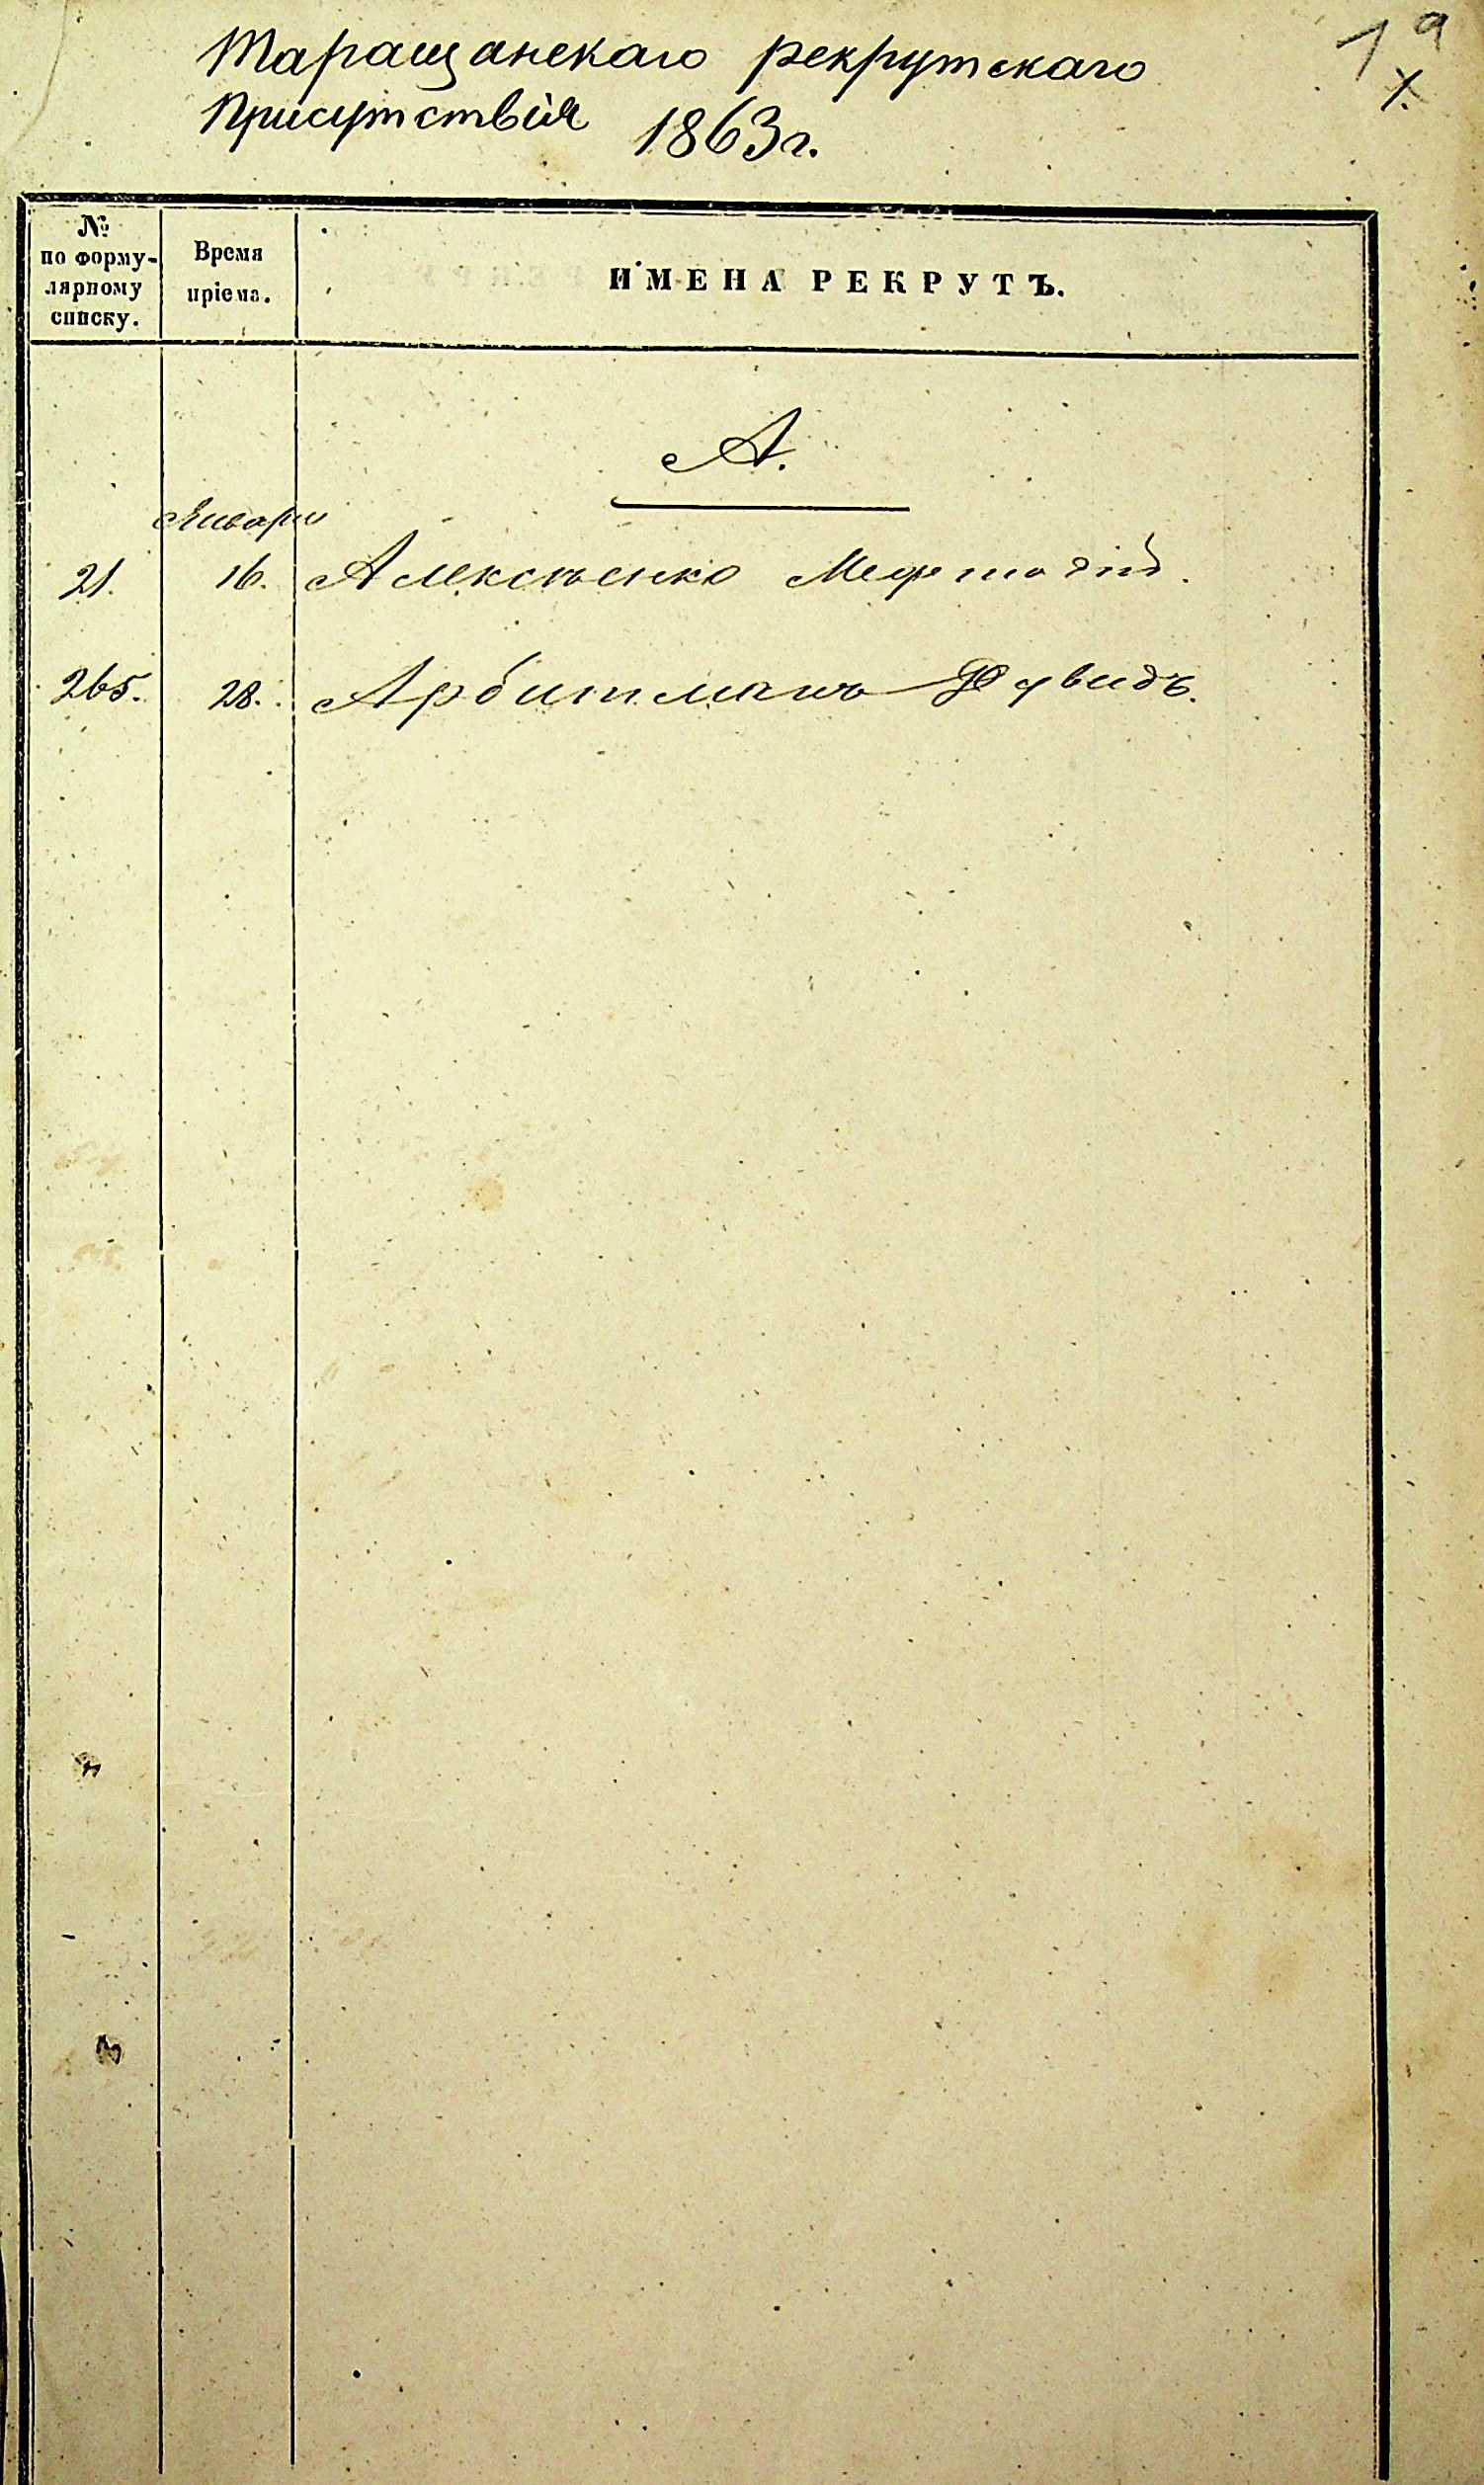 Таращанскаго рекрутскаго
Присутствія 1863 г.
1а
№ по формулярному списку.
Время пріема.
ИМЕНА РЕКРУТЪ.
А.
Января
21. 16. Алексѣенко Мефтодій.
265. 28. Арбитманъ Дувидъ.